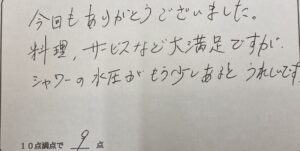 今回もありがとうございました。
料理、サービスなど大満足ですが、
シャワーの水圧がもう少しあるとうれしいです
10点満点で 9 点